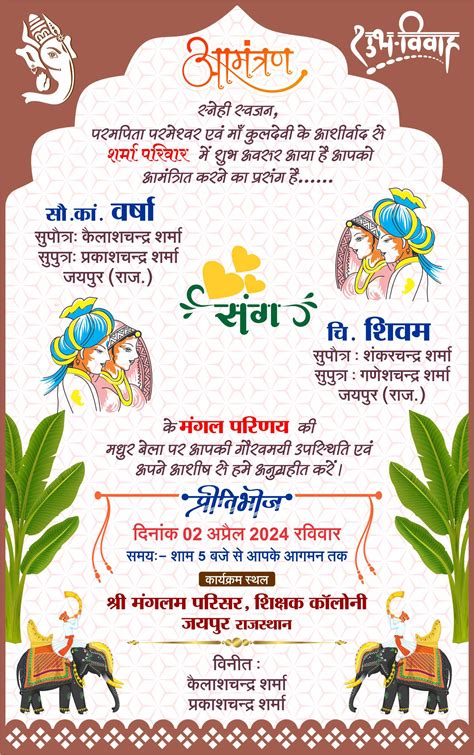 शुभ-विवाह
आमंत्रण
स्नेही स्वजन,
परमपिता परमेश्वर एवं माँ कुलदेवी के आशीर्वाद से
शर्मा परिवार में शुभ अवसर आया है आपको
आमंत्रित करने का प्रसंग है......
सौ.कां. वर्षा
सुपौत्रः कैलाशचन्द्र शर्मा
सुपुत्रः प्रकाशचन्द्र शर्मा
जयपुर (राज.)
संग
चि. शिवम
सुपौत्र : शंकरचन्द्र शर्मा
सुपुत्र : गणेशचन्द्र शर्मा
जयपुर (राज.)
के मंगल परिणय की
मधुर बेला पर आपकी गौरवमयी उपस्थिति एवं
अपने आशीष से हमे अनुग्रहीत करें।
प्रीतिभोज
दिनांक 02 अप्रैल 2024 रविवार
समयः- शाम 5 बजे से आपके आगमन तक
कार्यक्रम स्थल
श्री मंगलम परिसर, शिक्षक कॉलोनी
जयपुर राजस्थान
विनीत :
कैलाशचन्द्र शर्मा
प्रकाशचन्द्र शर्मा